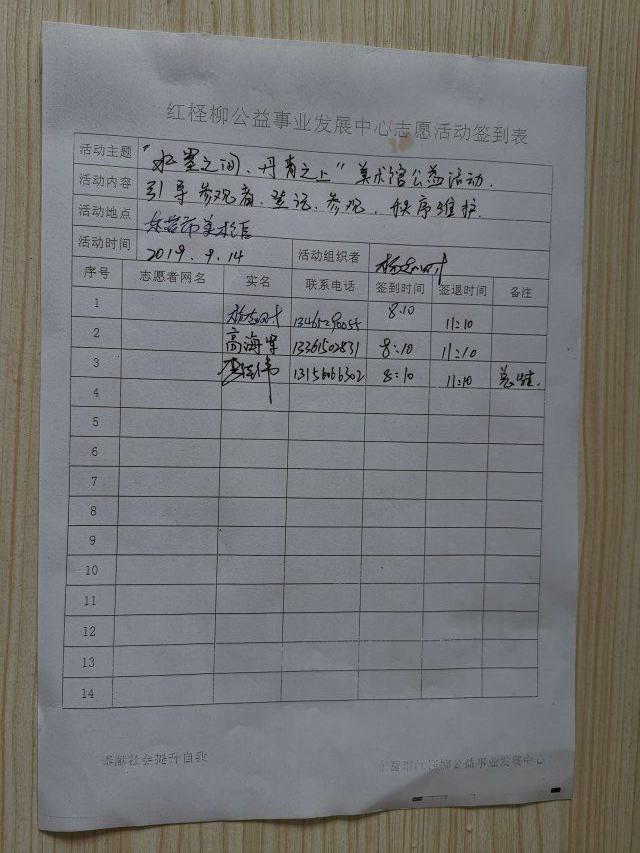 红柽柳公益事业发展中心志愿活动签到表
活动主题 "水墨之间、丹青之上"美术馆公益活动.
活动内容 引导参观者、登记、参观、秩序维护.
活动地点 东营市美术馆
活动时间 2019.9.14 活动组织者
序号 志愿者网名 实名 联系电话 签到时间 签退时间 备注
1 8:10 11:10
2 高海军 13361502831 8:10 11:10
3 13156066302 8:10 11:10
4
5
6
7
8
9
10
11
12
13
14
奉献社会提升自我
东营市红柽柳公益事业发展中心